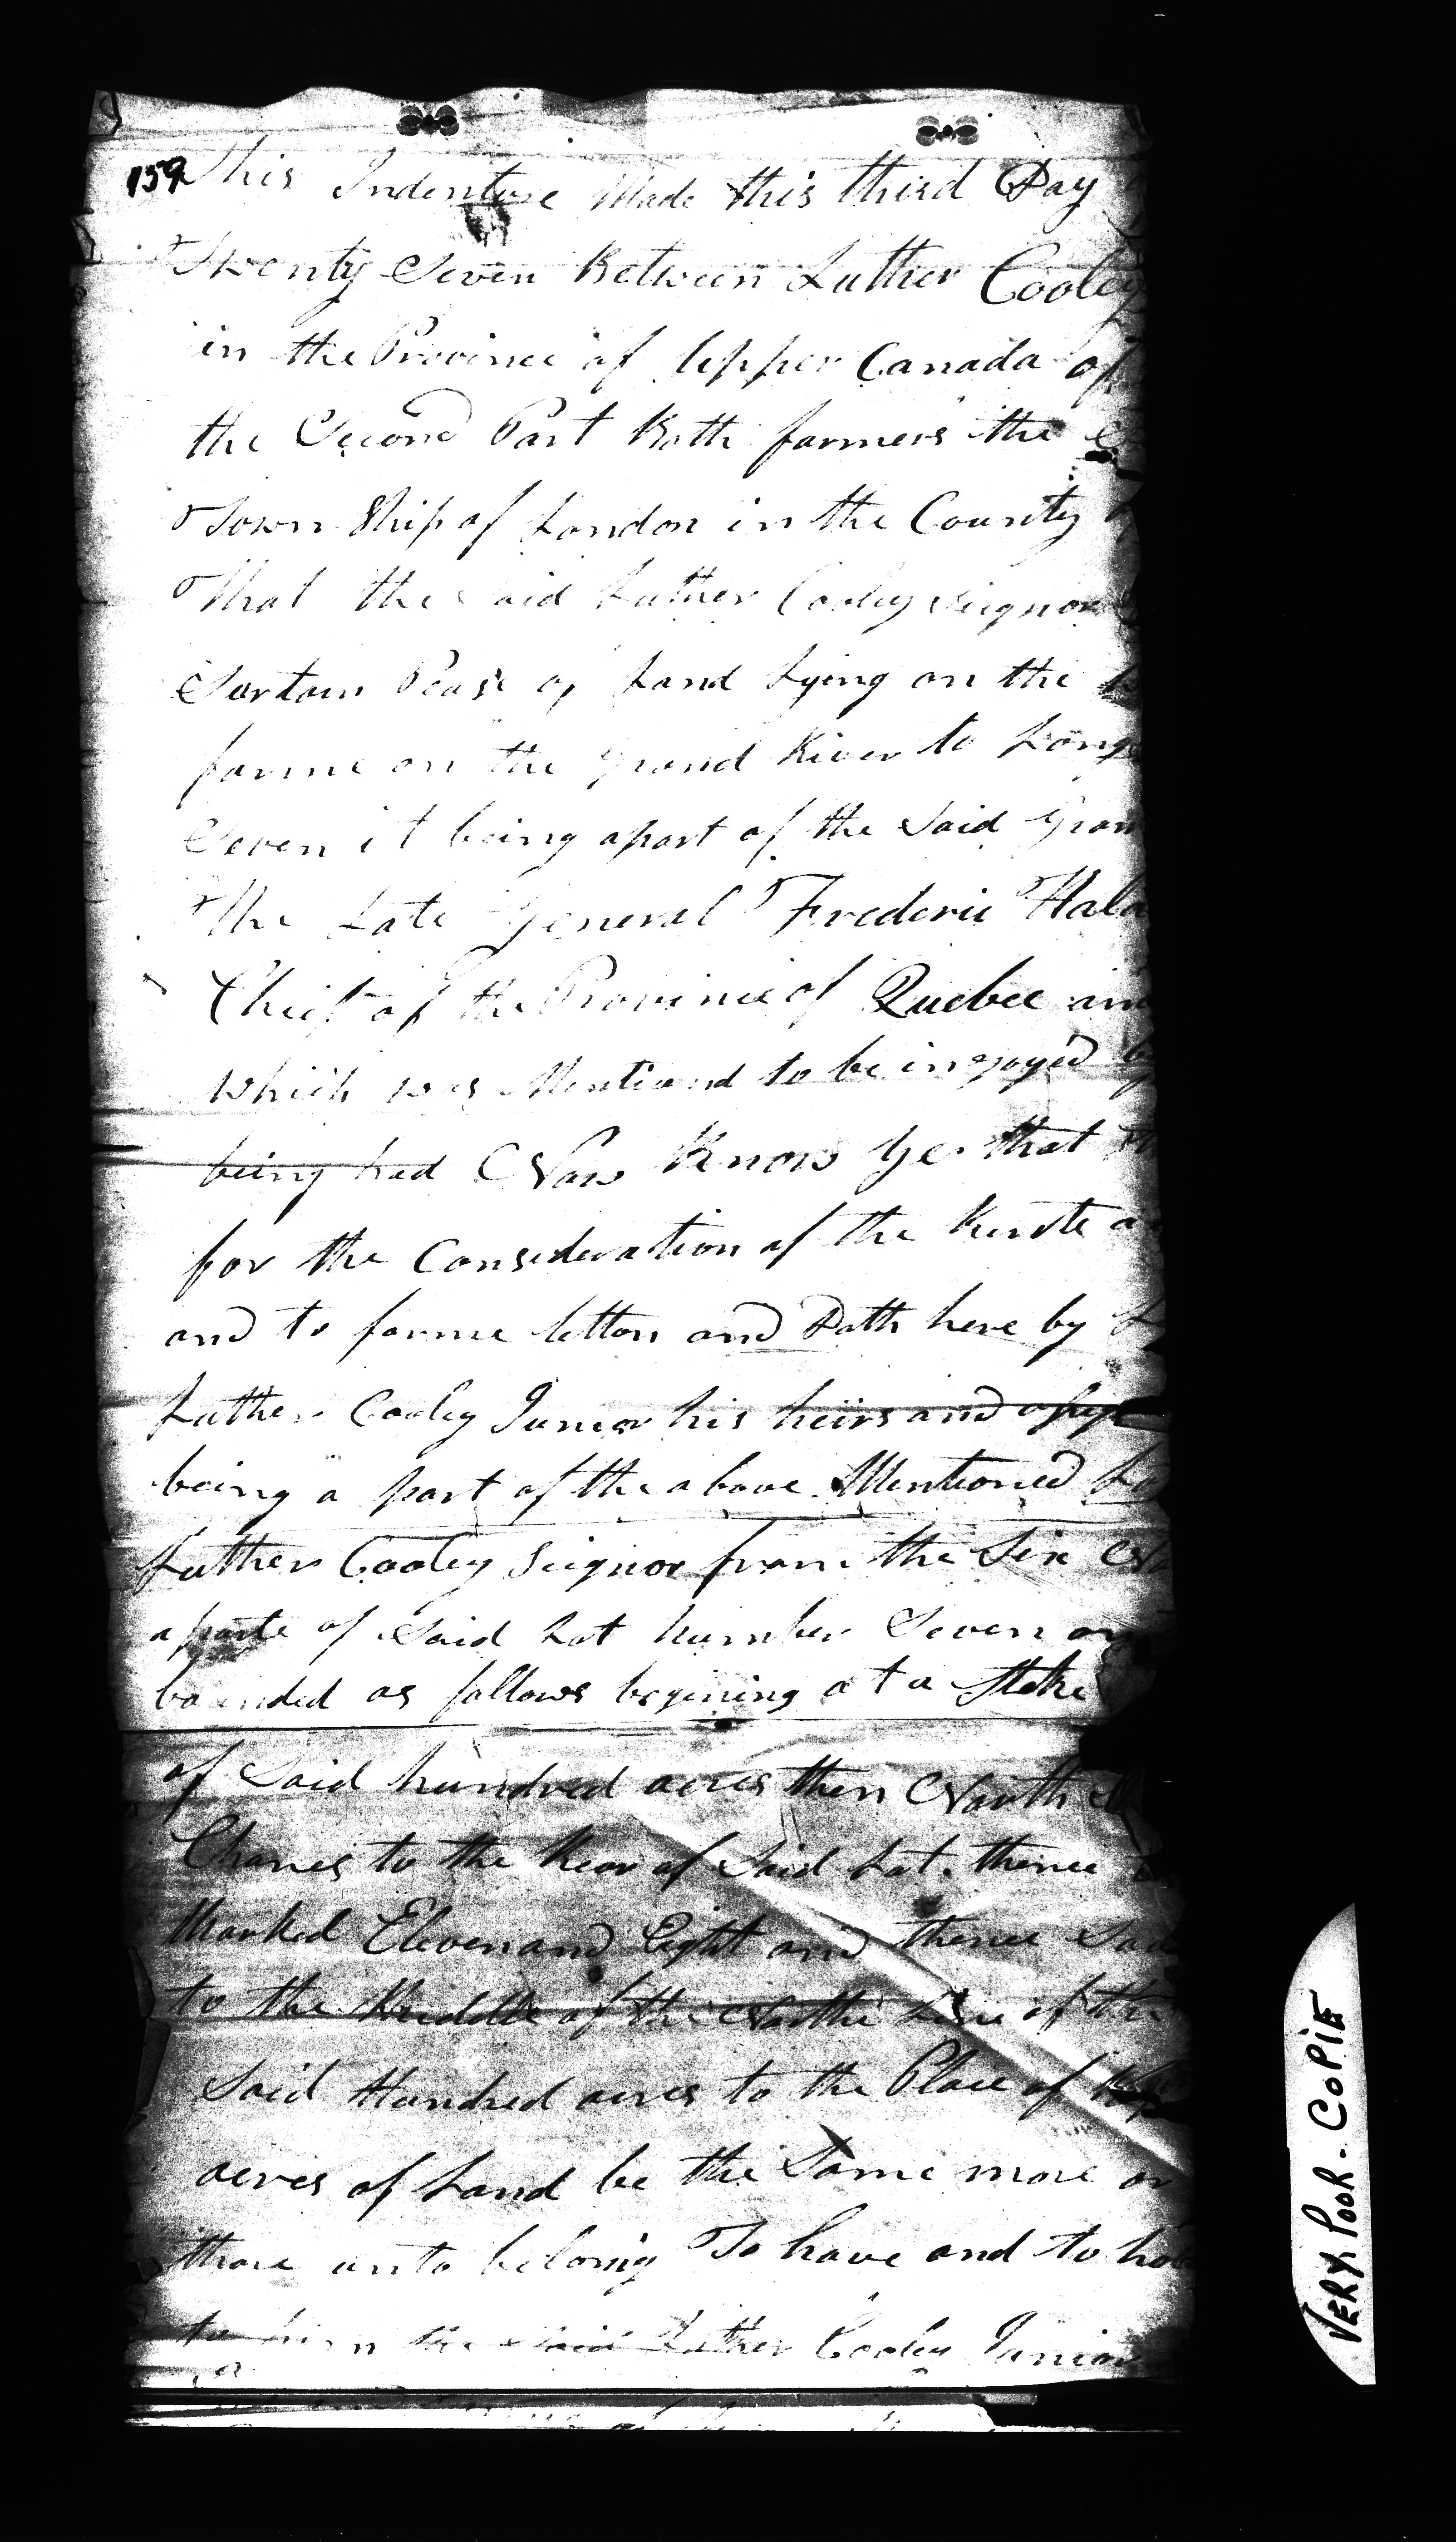 159 This Indenture Made this third Day
Twenty Seven Between Luther Cooley
in the Province of Upper Canada of
the Second Part Both farmers the
Town Ship of London in the County
That the Said Luther Cooley Seignor
Sertain Pease of Land Lying on the
farme on the grand River to Long
Seven it being apart of the Said Gran
The Late General Frederic Hala
Chief of the Province of Quebec an
which was Mentiond to be injoyed by
being had Now Know Ye that
for the Consideration of the
and to farme letton and Doth here by
Luther Cooley Junior his heirs and
being a part of the above Mentioned
Luther Cooley Seignor from the Six
a parte of Said Lot number Seven
bounded as follows begining at a Stake
of Said hundred acres then North
Chanes to the Rear of Said Lot. thence
Marked Eleven and Eight and thence
to the Middle of the Northe Line of the
Said Hundred acres to the Place of
acres of Land be the Same more or
thare unto belonig To have and to ho
to him the Said Luther Cooley Junior
VERY POOR - COPIE